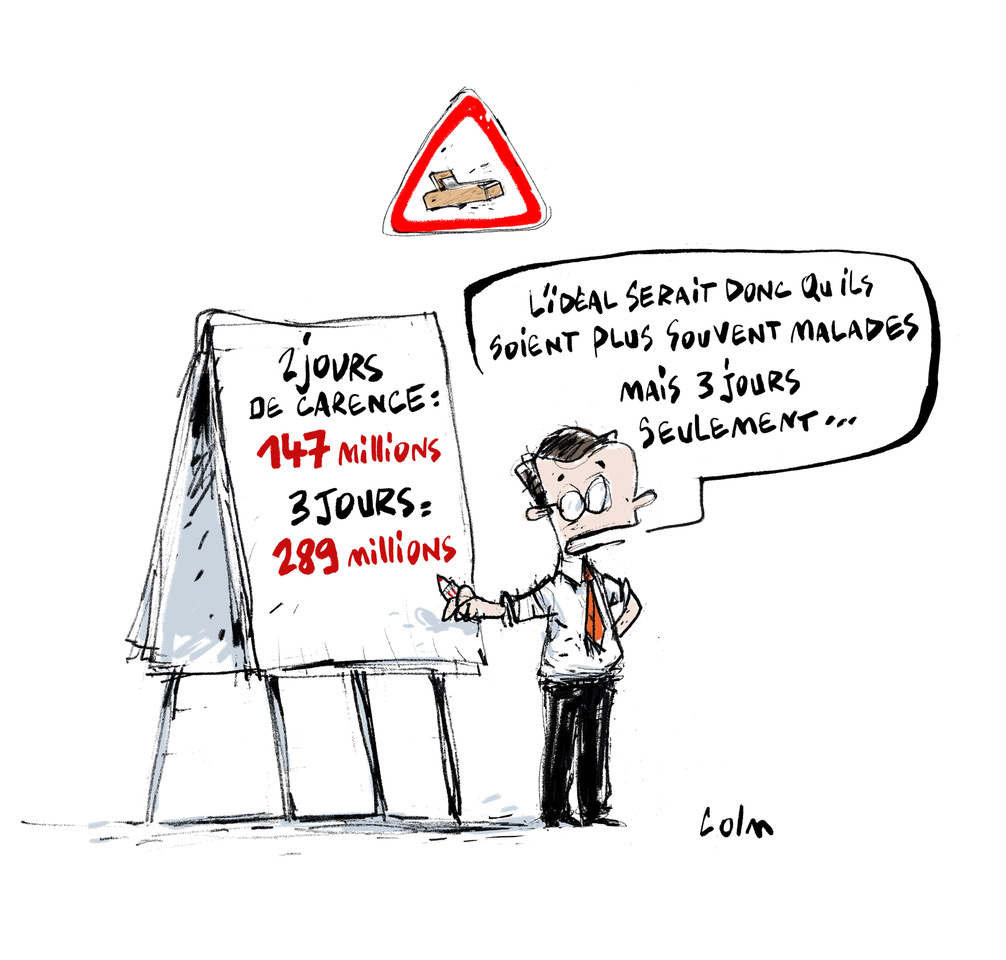 2 JOURS
DE CARENCE :
147 MILLIONS
3 JOURS :
289 MILLIONS
L'IDÉAL SERAIT DONC QU'ILS
SOIENT PLUS SOUVENT MALADES
MAIS 3 JOURS
SEULEMENT...
Colm